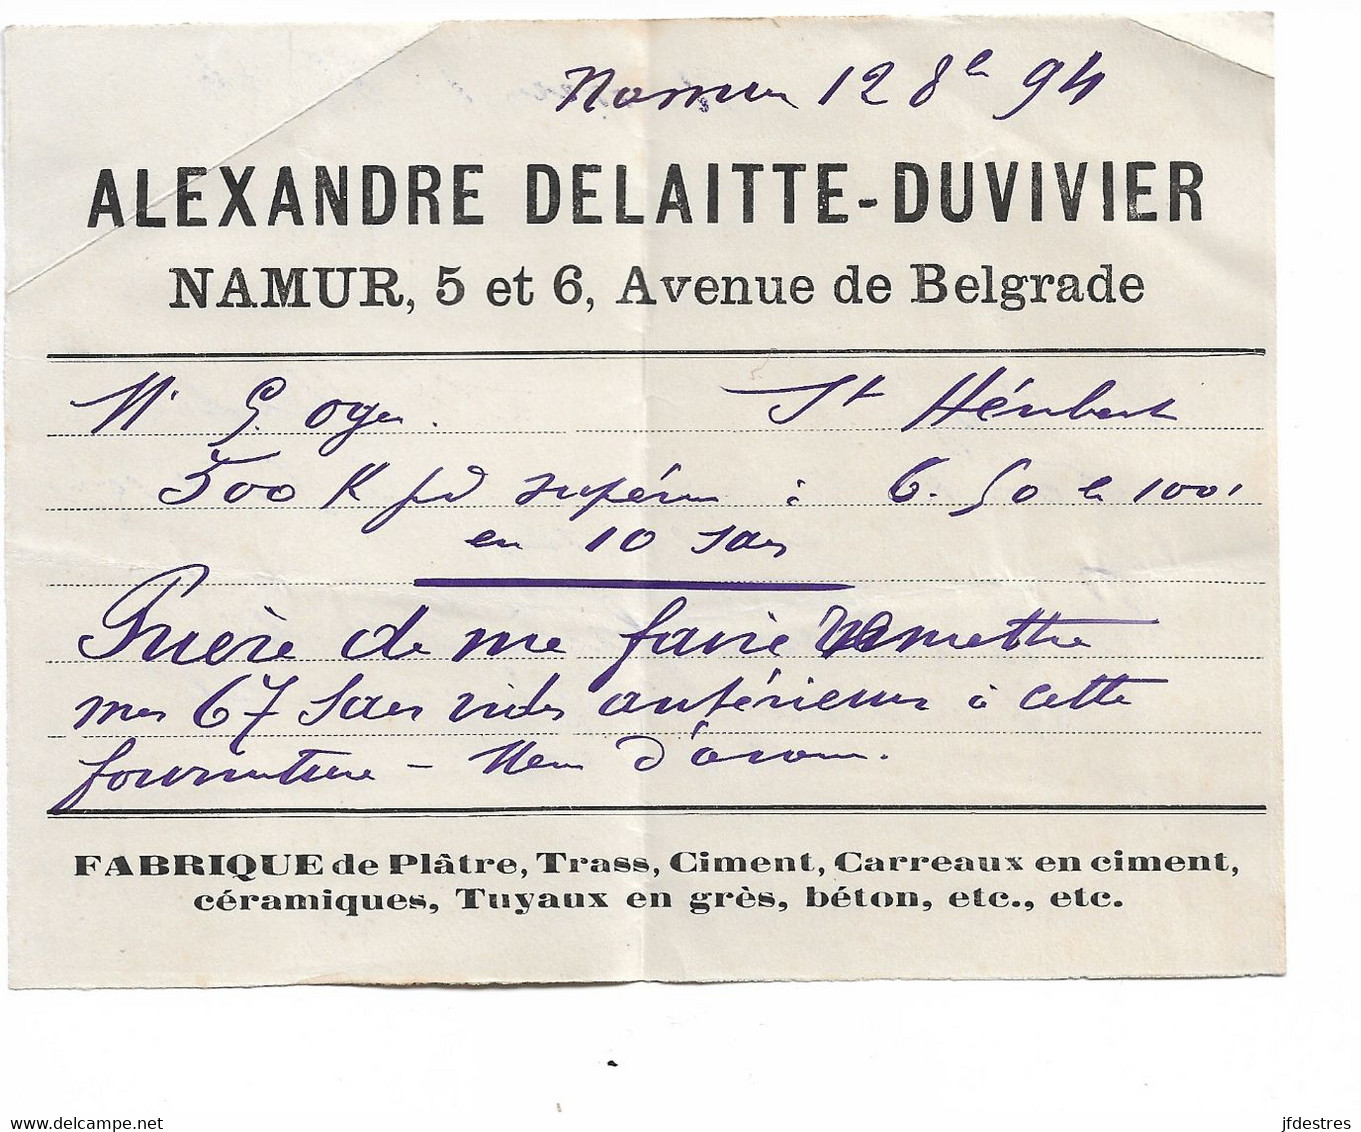 Namur 12 8e 94
ALEXANDRE DELAITTE-DUVIVIER
NAMUR, 5 et 6, Avenue de Belgrade
Mr G. Oger. St Hérubert
500 K supérieur à 6.50 le 100 K
en 10 sacs
Prière de me faire remettre
mes 67 sacs vides antérieurs à cette
fourniture - d'avance.
FABRIQUE de Plâtre, Trass, Ciment, Carreaux en ciment,
céramiques, Tuyaux en grès, béton, etc., etc.
www.delcampe.net
jfdestres